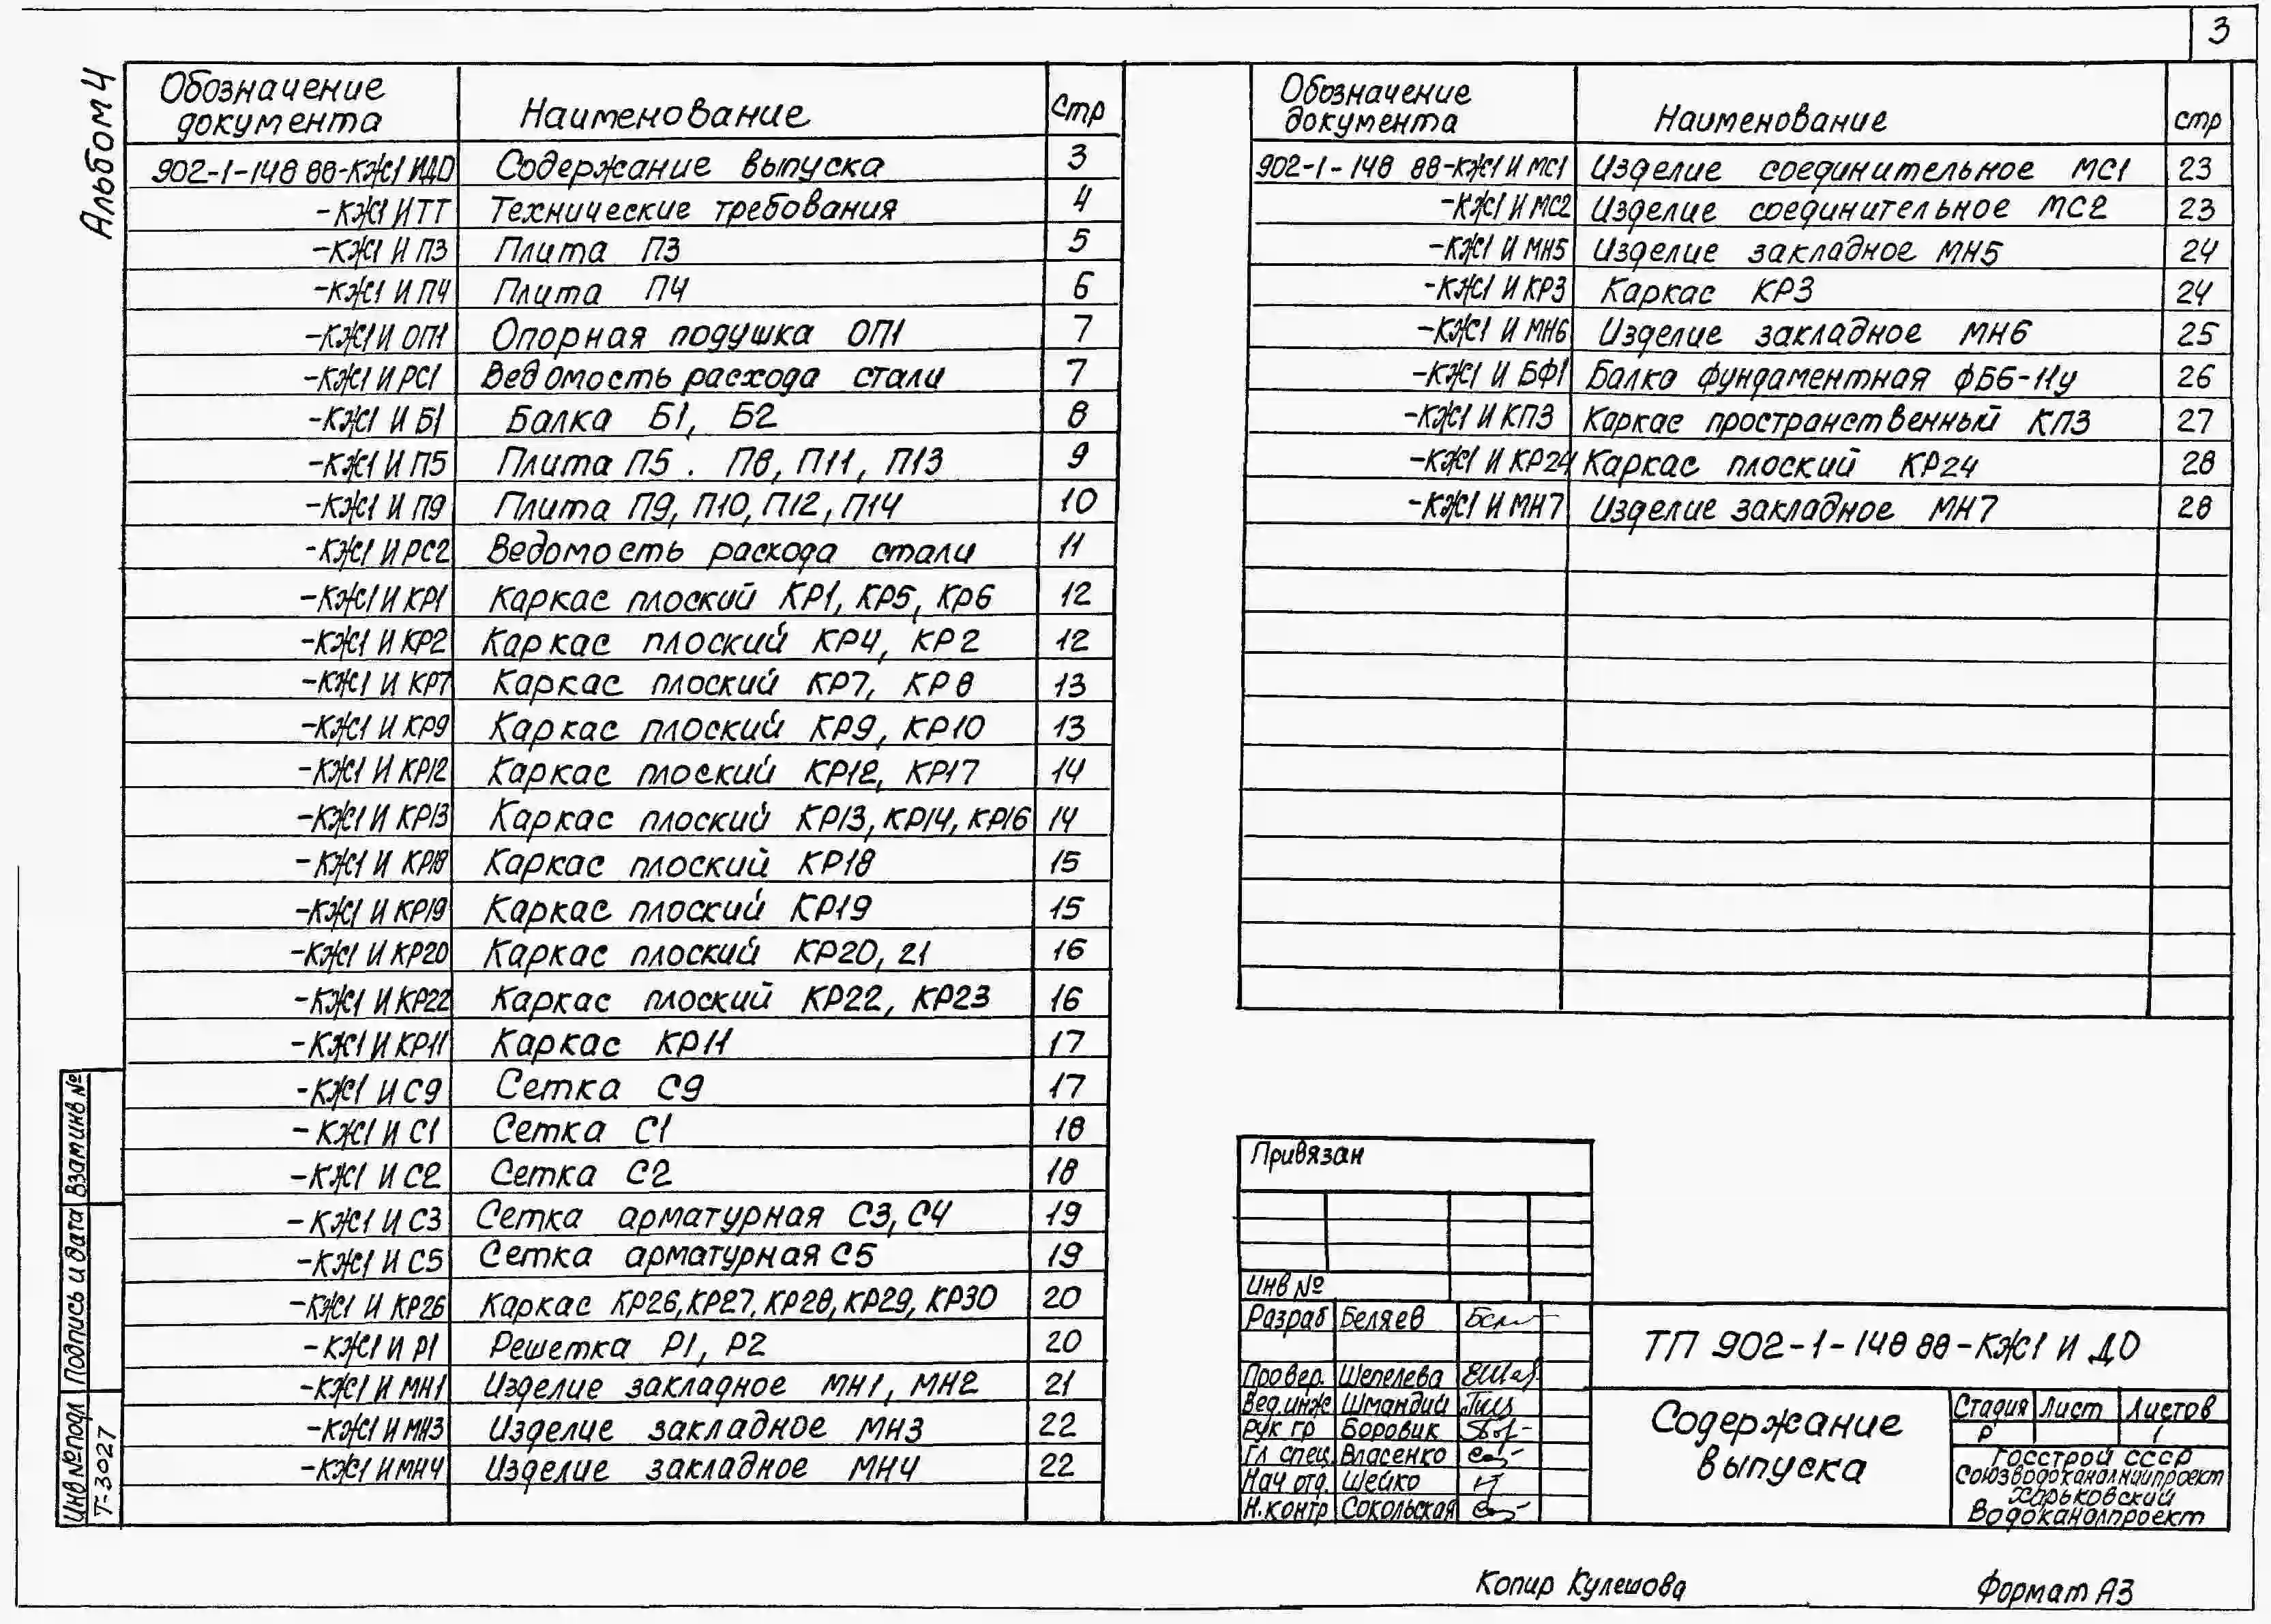 3
Альбом 4
Обозначение документа Наименование Стр
902-1-148 88-КЖ1 И ДО Содержание выпуска 3
-КЖ1 И ТТ Технические требования 4
-КЖ1 И П3 Плита П3 5
-КЖ1 И П4 Плита П4 6
-КЖ1 И ОП1 Опорная подушка ОП1 7
-КЖ1 И РС1 Ведомость расхода стали 7
-КЖ1 И Б1 Балка Б1, Б2 8
-КЖ1 И П5 Плита П5 . П8, П11, П13 9
-КЖ1 И П9 Плита П9, П10, П12, П14 10
-КЖ1 И РС2 Ведомость расхода стали 11
-КЖ1 И КР1 Каркас плоский КР1, КР5, Кр6 12
-КЖ1 И КР2 Каркас плоский КР4, КР2 12
-КЖ1 И КР7 Каркас плоский КР7, КР8 13
-КЖ1 И КР9 Каркас плоский КР9, КР10 13
-КЖ1 И КР12 Каркас плоский КР12, КР17 14
-КЖ1 И КР13 Каркас плоский КР13, КР14, КР16 14
-КЖ1 И КР18 Каркас плоский КР18 15
-КЖ1 И КР19 Каркас плоский КР19 15
-КЖ1 И КР20 Каркас плоский КР20, 21 16
-КЖ1 И КР22 Каркас плоский КР22, КР23 16
-КЖ1 И КР11 Каркас КР11 17
-КЖ1 И С9 Сетка С9 17
-КЖ1 И С1 Сетка С1 18
-КЖ1 И С2 Сетка С2 18
-КЖ1 И С3 Сетка арматурная С3, С4 19
-КЖ1 И С5 Сетка арматурная С5 19
-КЖ1 И КР26 Каркас КР26, КР27, КР28, КР29, КР30 20
-КЖ1 И Р1 Решетка Р1, Р2 20
-КЖ1 И МН1 Изделие закладное МН1, МН2 21
-КЖ1 И МН3 Изделие закладное МН3 22
-КЖ1 И МН4 Изделие закладное МН4 22
Обозначение документа Наименование стр
902-1-148 88-КЖ1 И МС1 Изделие соединительное МС1 23
-КЖ1 И МС2 Изделие соединительное МС2 23
-КЖ1 И МН5 Изделие закладное МН5 24
-КЖ1 И КР3 Каркас КР3 24
-КЖ1 И МН6 Изделие закладное МН6 25
-КЖ1 И БФ1 Балка фундаментная ФБ6-11у 26
-КЖ1 И КП3 Каркас пространственный КП3 27
-КЖ1 И КР24 Каркас плоский КР24 28
-КЖ1 И МН7 Изделие закладное МН7 28
Взам инв №
Подпись и дата
Инв № подл
Т-3027
Привязан
Инв №
Разраб Беляев
Провер. Шепелева
Вед. инж. Шмандий
Рук гр Боровик
Гл спец. Власенко
Нач отд. Шейко
Н.контр Сокольская
ТП 902-1-148 88-КЖ1 И ДО
Содержание выпуска
Стадия Лист Листов
Р 1
Госстрой СССР
Союзводоканалниипроект
Харьковский
Водоканалпроект
Копир Кулешова
Формат А3